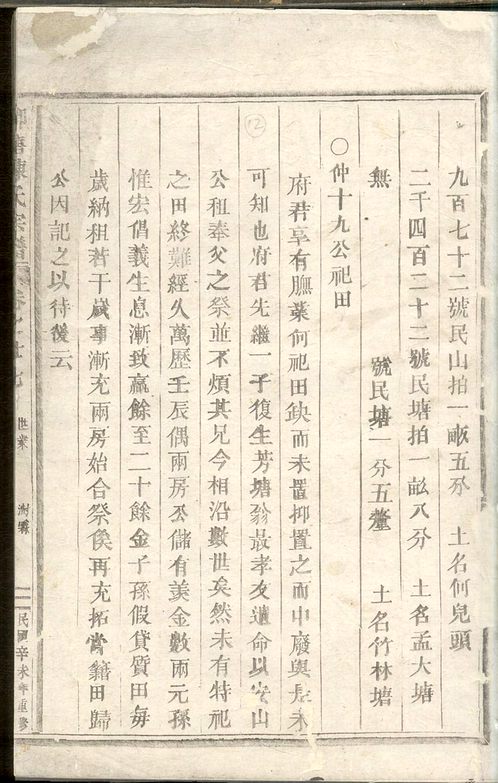 九百七十二號民山拍一畝五分 土名何兒頭
二千四百二十二號民塘拍一畝八分 土名孟大塘
無 號民塘一分五釐 土名竹林塘
〇仲十九公祀田
府君享有膴業何祀田缺而未置抑置之而中廢與是未
⑫
可知也府君先繼一子復生芳塘翁最孝友遺命以安山
公祖奉父之祭並不煩其兄今相沿數世矣然未有特祀
之田終難經久萬歷壬辰偶兩房公儲有羨金數兩元孫
惟宏倡義生息漸致贏餘至二十餘金子孫假貸質田每
歲納租若干歲事漸充兩房始合祭俟再充拓嘗籍田歸
公因記之以待後云
陳氏宗譜
世業
二
民國辛未年重修